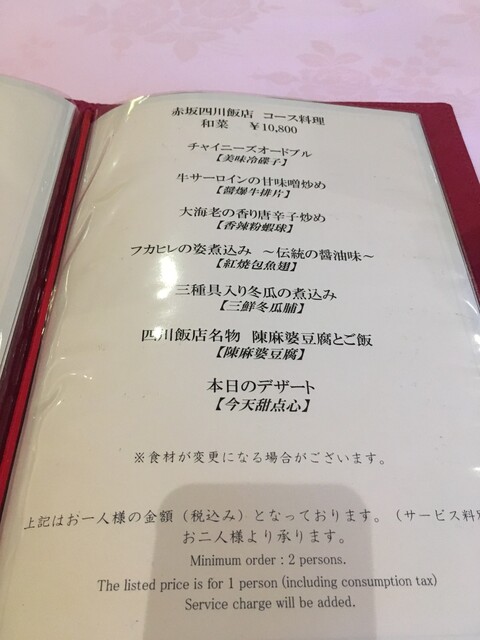 赤坂四川飯店 コース料理
和菜 ￥10,800
チャイニーズオードブル
【美味冷碟子】
牛サーロインの甘味噌炒め
【醤爆牛排片】
大海老の香り唐辛子炒め
【香辣粉蝦球】
フカヒレの姿煮込み ～伝統の醤油味～
【紅焼包魚翅】
三種具入り冬瓜の煮込み
【三鮮冬瓜脯】
四川飯店名物 陳麻婆豆腐とご飯
【陳麻婆豆腐】
本日のデザート
【今天甜点心】
※食材が変更になる場合がございます。
上記はお一人様の金額（税込み）となっております。（サービス料別
お二人様より承ります。
Minimum order : 2 persons.
The listed price is for 1 person (including consumption tax)
Service charge will be added.